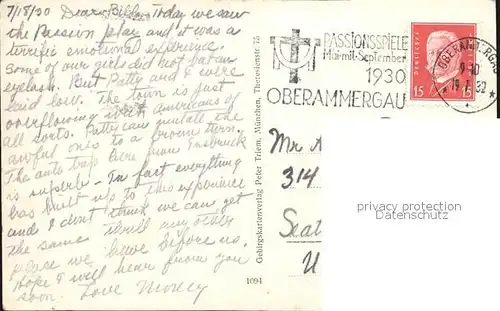 7/18/30 Dear Bill Today we saw
the Passion play and it was a
terrific emotional experience.
Some of our girls did not bat an
eyelash. But Patty and I were
laid low. The town is just
overflowing with americans of
all sorts. Patty can imitate the
awful ones to a brown turn.
The auto trip here from Insbruck
is superb - In fact everything
has built up to this experience
and I dont think we can get
the same thrill any other
place we have before us.
Hope I will hear from you
soon. Love
Gebirgskartenverlag Peter Triem, München, Theresienstr. 75
1094
PASSIONSSPIELE
Mai-mit-September
1930
OBERAMMERGAU
DEUTSCHES
15 15
OBERAMMERGAU
Mr
314
Seat
U
permission
Datenschutz